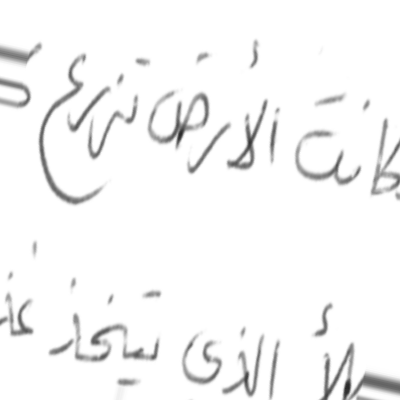 كانت الأرض تزرع
الذي يتخذ